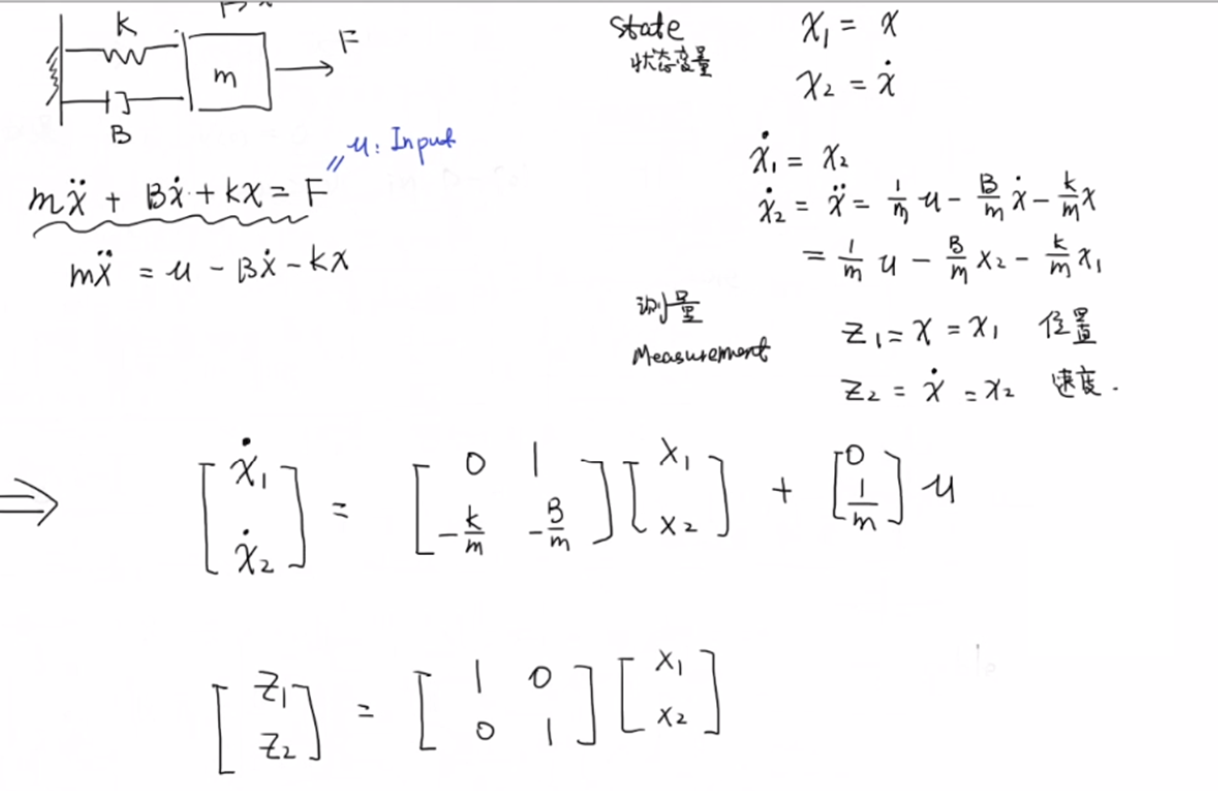 k
m
F
B
u: Input
mẍ + Bẋ + kx = F
mẍ = u - Bẋ - kx
State
状态变量
x₁ = x
x₂ = ẋ
ẋ₁ = x₂
ẋ₂ = ẍ = 1/m u - B/m ẋ - k/m x
= 1/m u - B/m x₂ - k/m x₁
测量
Measurement
z₁ = x = x₁ 位置
z₂ = ẋ = x₂ 速度.
⇒ [ẋ₁ ẋ₂] = [0 1 -k/m -B/m] [x₁ x₂] + [0 1/m] u
[z₁ z₂] = [1 0 0 1] [x₁ x₂]